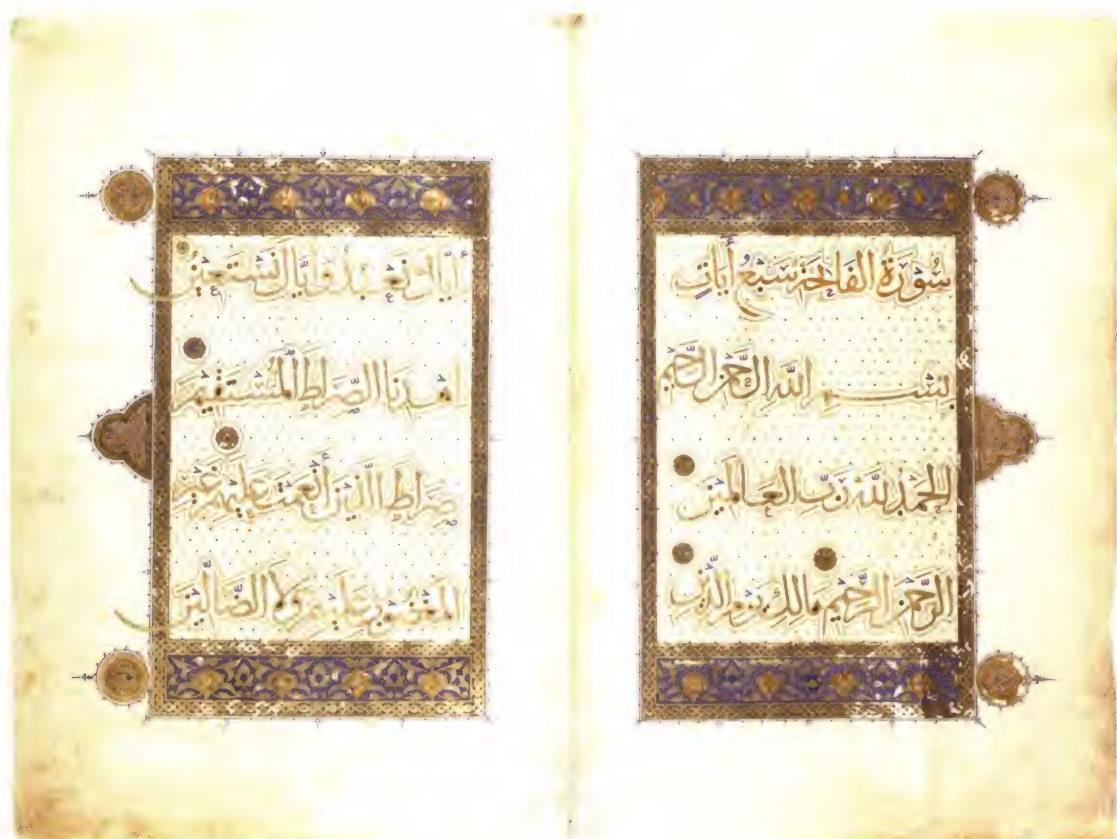 سُورَةُ الفَاتِحَة سَبْعُ أيَات
بِسْمِ اللهِ الرَّحْمٰنِ الرَّحِيمِ
الحَمْدُ لِلّهِ رَبِّ العَالَمِينَ
الرَّحْمٰنِ الرَّحِيمِ مَالِكِ يَوْمِ الدِّينِ
أيَّاكَ نَعْبُدُ وَايَّاكَ نَسْتَعِينُ
اهْدِنَا الصِّرَاطَ المُسْتَقِيمَ
صِرَاطَ الَّذِينَ أَنْعَمْتَ عَلَيْهِمْ غَيْرِ
المَغْضُوبِ عَلَيْهِمْ وَلاَ الضَّالِّينَ